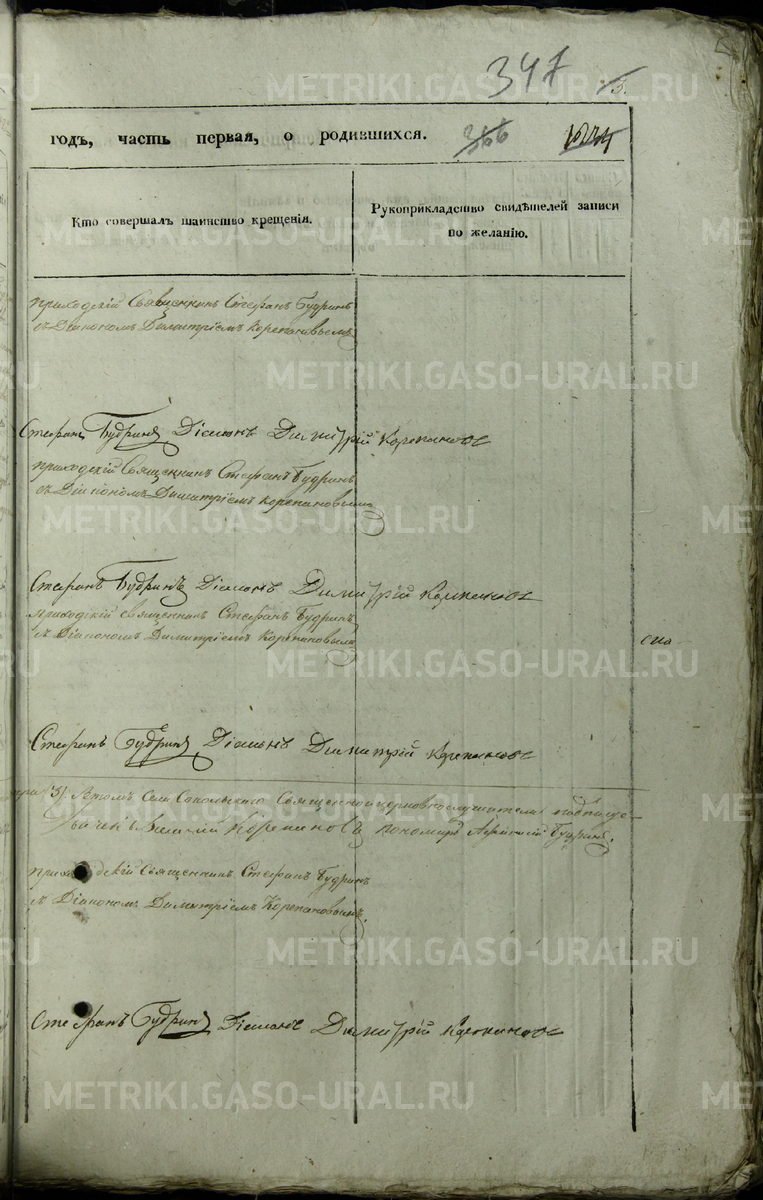 347
годъ, часть первая, о родившихся. 366
Кто совершалъ таинство крещенія.
Рукоприкладство свидѣтелей записи по желанію.
приходскій Священникъ Стефанъ Будринъ
съ Діакономъ Димитріемъ Корепановымъ
Стефанъ Будринъ Діаконъ Димитрій Корепановъ
приходскій Священникъ Стефанъ Будринъ
съ Діакономъ Димитріемъ Корепановымъ
Стефанъ Будринъ Діаконъ Димитрій Корепановъ
приходскій священникъ Стефанъ Будринъ
съ Діакономъ Димитріемъ Корепановымъ
Стефанъ Будринъ Діаконъ Димитрій Корепановъ
Села Священноцерковнослужители
Корепановъ пономарь Будринъ.
приходскій Священникъ Стефанъ Будринъ
съ Діакономъ Димитріемъ Корепановымъ.
Стефанъ Будринъ Діаконъ Димитрій Корепановъ
METRIKI.GASO-URAL.RU